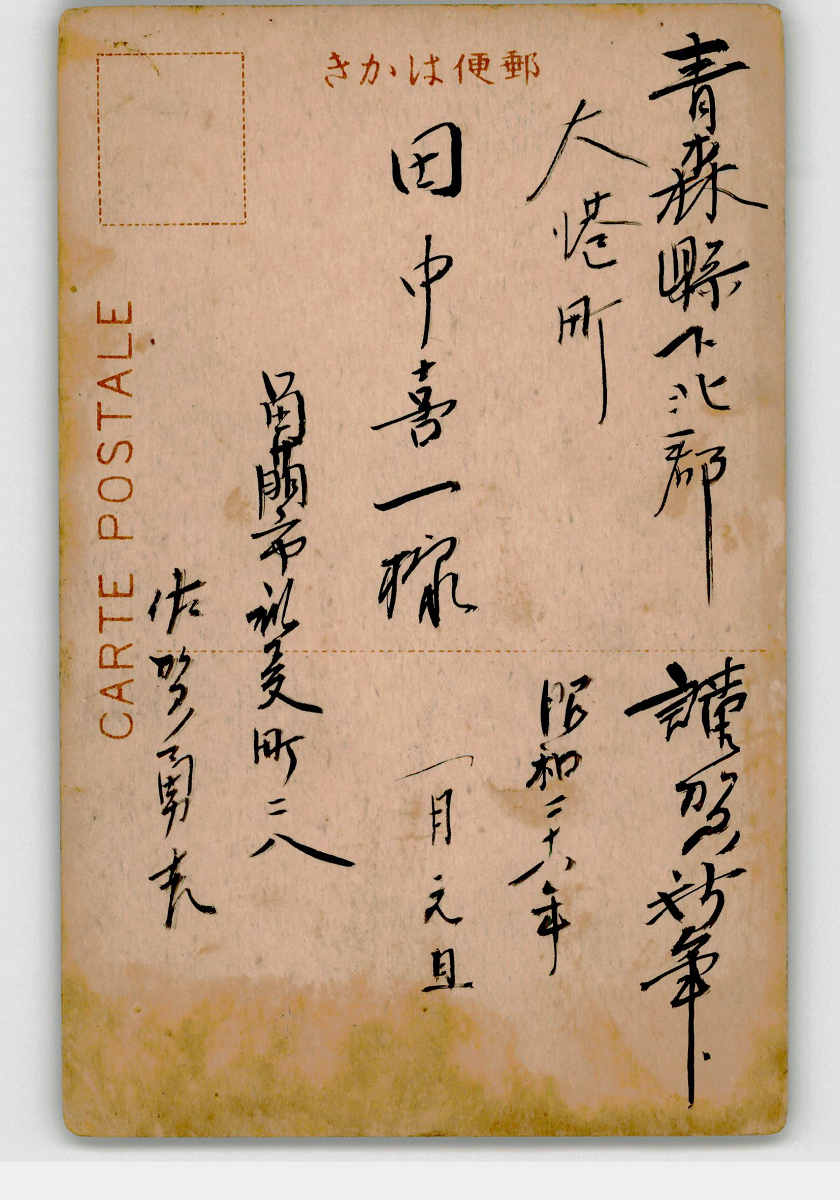 郵便はかき
CARTE POSTALE
青森縣下北郡
大港町
田中喜一様
謹賀新年
昭和二十八年
一月元旦
留萌市礼受町二八
佐賀勇